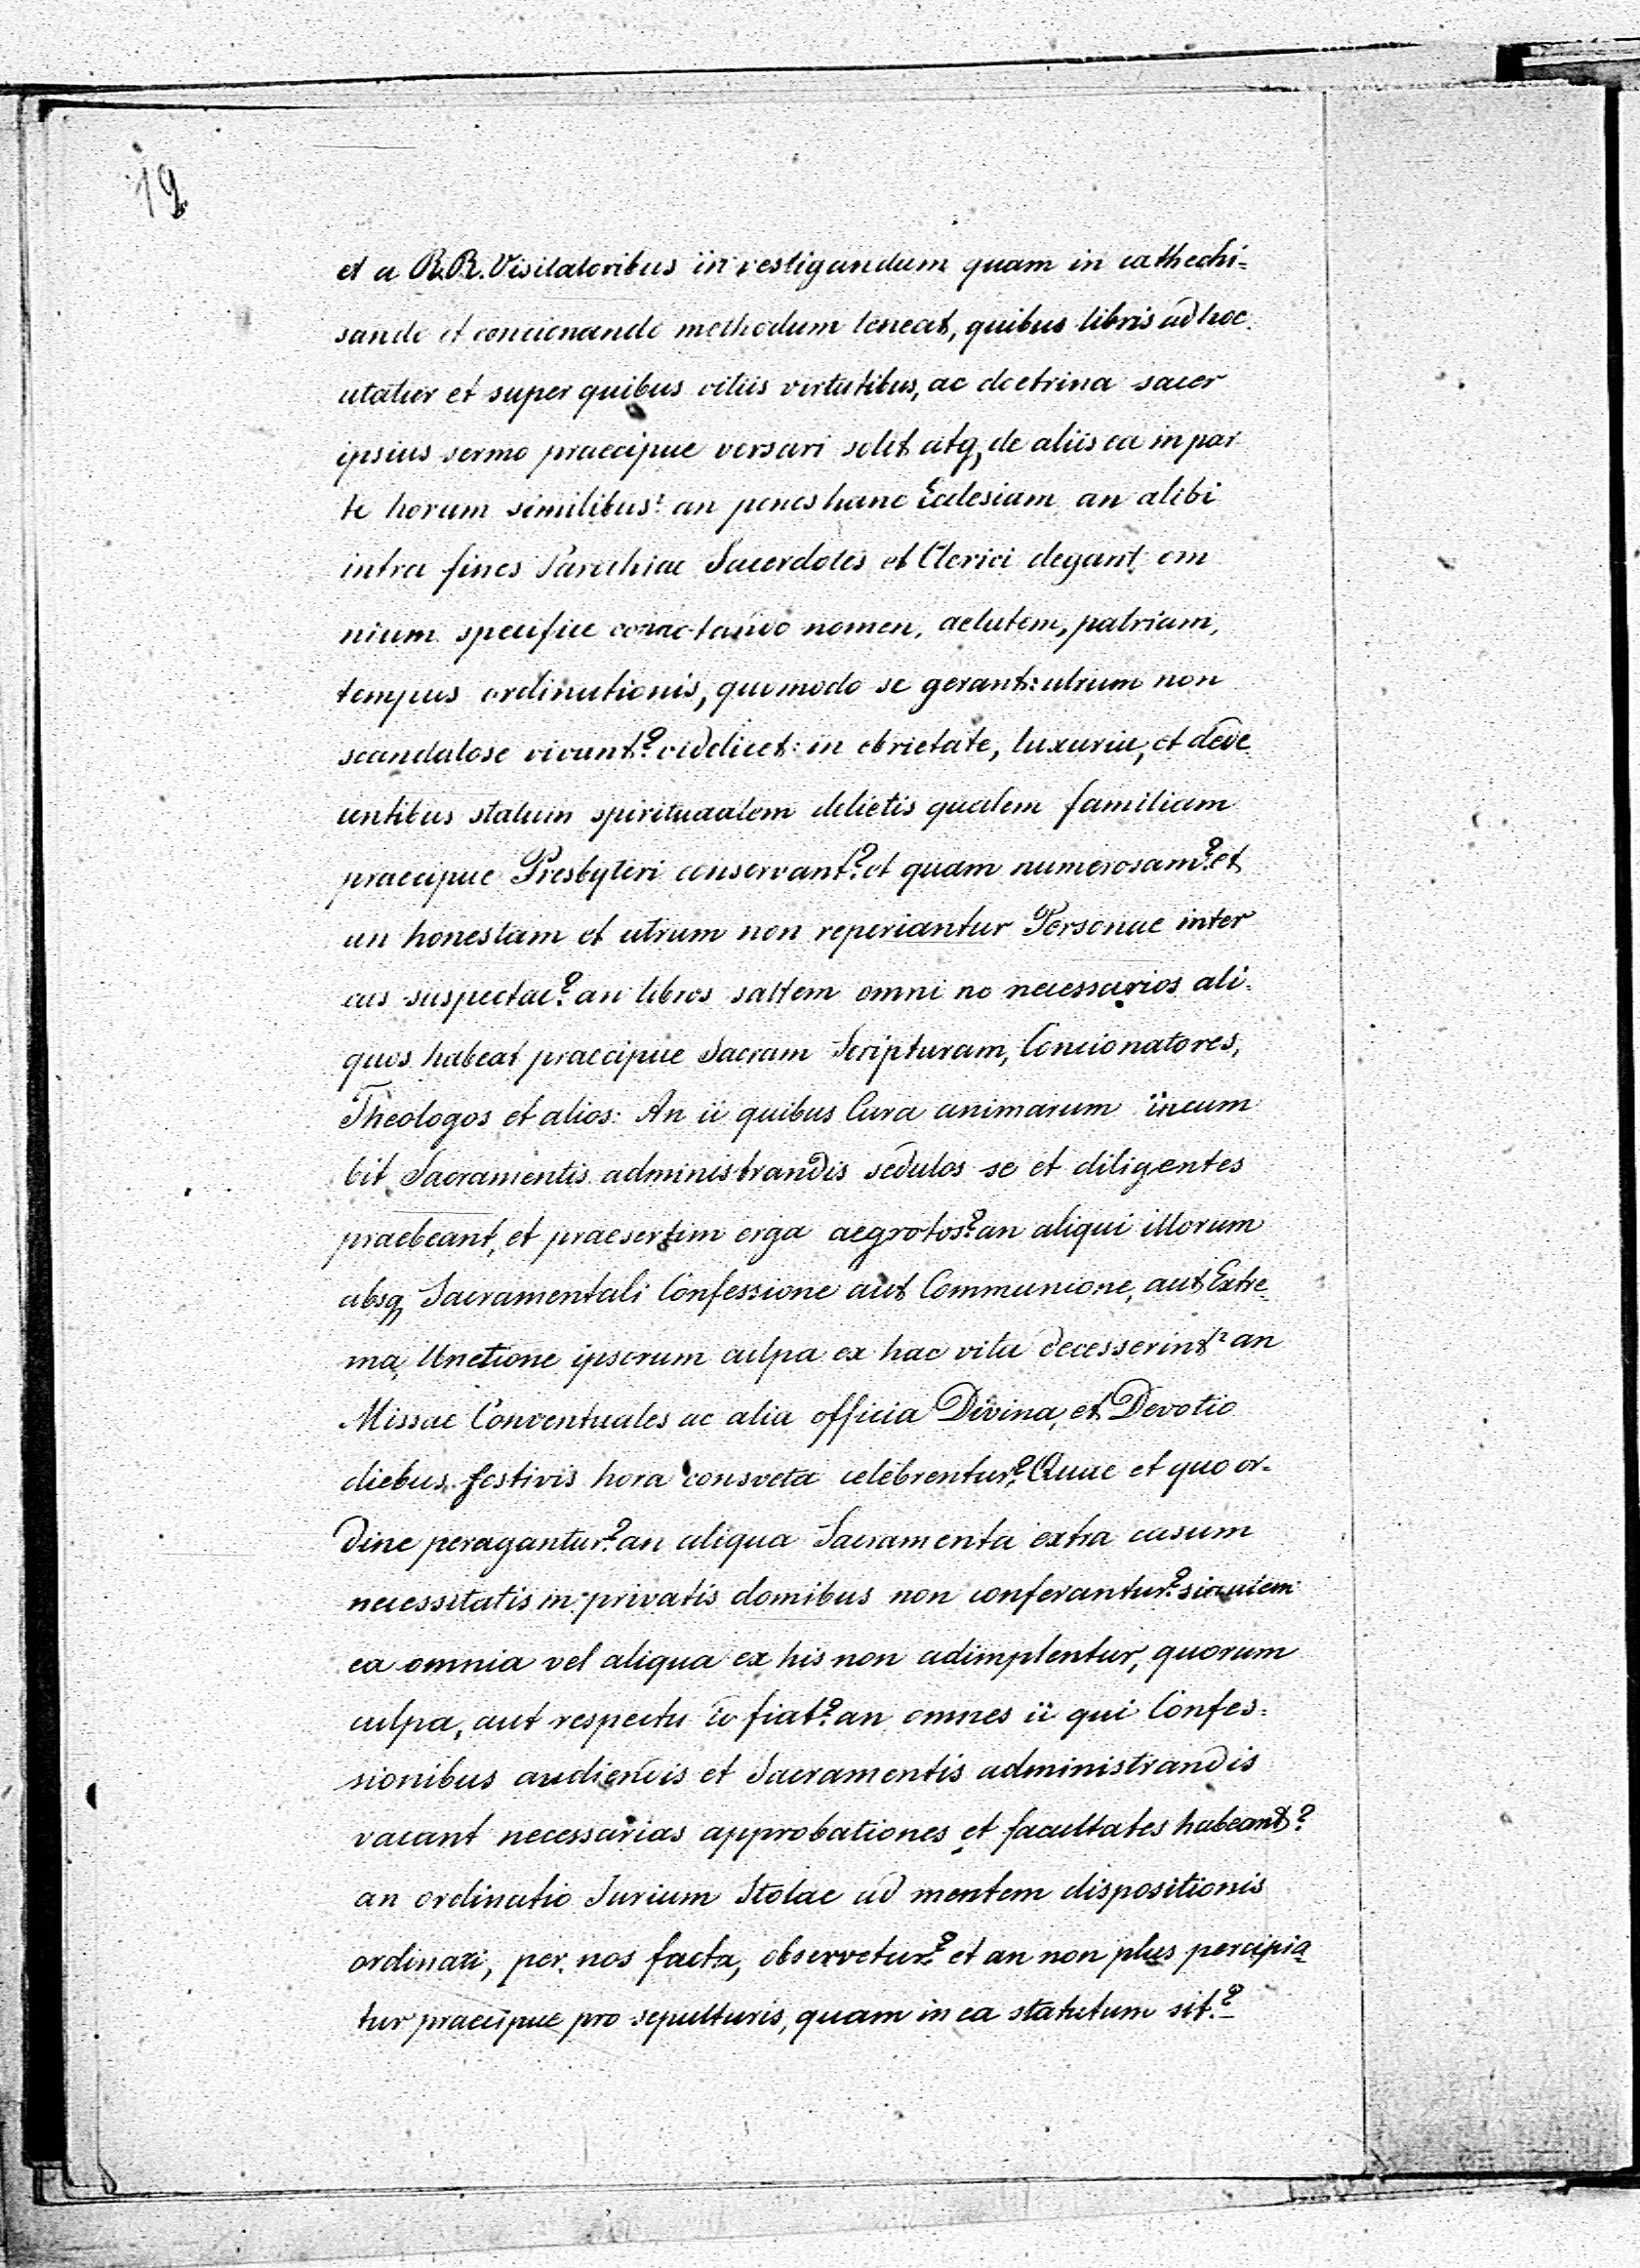 19
et a R.R. Visitatoribus investigandum quam in cathechi-
sando et concionando methodum teneat, quibus libris ad hoc
utatur et super quibus vitiis virtutibus, ac doctrina sacer
ipsius sermo praecipue versari solet atq, de aliis ea in par
te horum similibus? an penes hanc Ecclesiam an alibi
intra fines Parochiae Sacerdotes et Clerici degant om
nium specifice connotando nomen, aetatem, patriam,
tempus ordinationis, quomodo se gerant: utrum non
scandalose vivant? videlicet: in ebrietate, luxuria, et dede
centibus statum spiritualem delictis qualem familiam
praecipue Presbyteri conservant? et quam numerosam? et
an honestam et utrum non reperiantur Personae inter
eas suspectae? an libros saltem omni no necessarios ali-
quos habeat praecipue Sacram Scripturam, Concionatores,
Theologos et alios: An ii quibus Cura animarum incum
bit Sacramentis administrandis sedulos se et diligentes
praebeant, et praesertim erga aegrotos? an aliqui illorum
absq, Sacramentali Confessione aut Communione, aut Extre-
ma, Unctione ipsorum culpa ex hac vita decesserint? an
Missae Conventuales ac alia officia Divina, et Devotio
diebus festivis hora consveta celebrentur? Quae et quo or-
dine peragantur? an aliqua Sacramenta extra casum
necessitatis in privatis domibus non conferantur? si autem
ea omnia vel aliqua ex his non adimplentur, quorum
culpa, aut respectu id fiat? an omnes ii qui Confes-
sionibus audiendis et Sacramentis administrandis
vacant necessarias approbationes et facultates habeant?
an ordinatio Jurium Stolae ad mentem dispositionis
ordinarii, per nos facta, observetur? et an non plus percipia
tur praecipue pro sepulturis, quam in ea statutum sit?